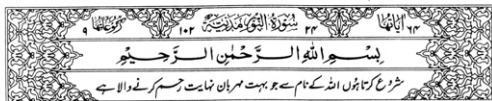 اٰیَاتُهَا ۶۴ ۲۴ سُوْرَةُ النُّوْرِ مَدَنِیَّةٌ ۱۰۲ رُكُوْعَاتُهَا ۹
بِسْمِ اللّٰهِ الرَّحْمٰنِ الرَّحِیْمِ
شروع کرتا ہوں اللہ کے نام سے جو بہت مہربان نہایت رحم کرنے والا ہے